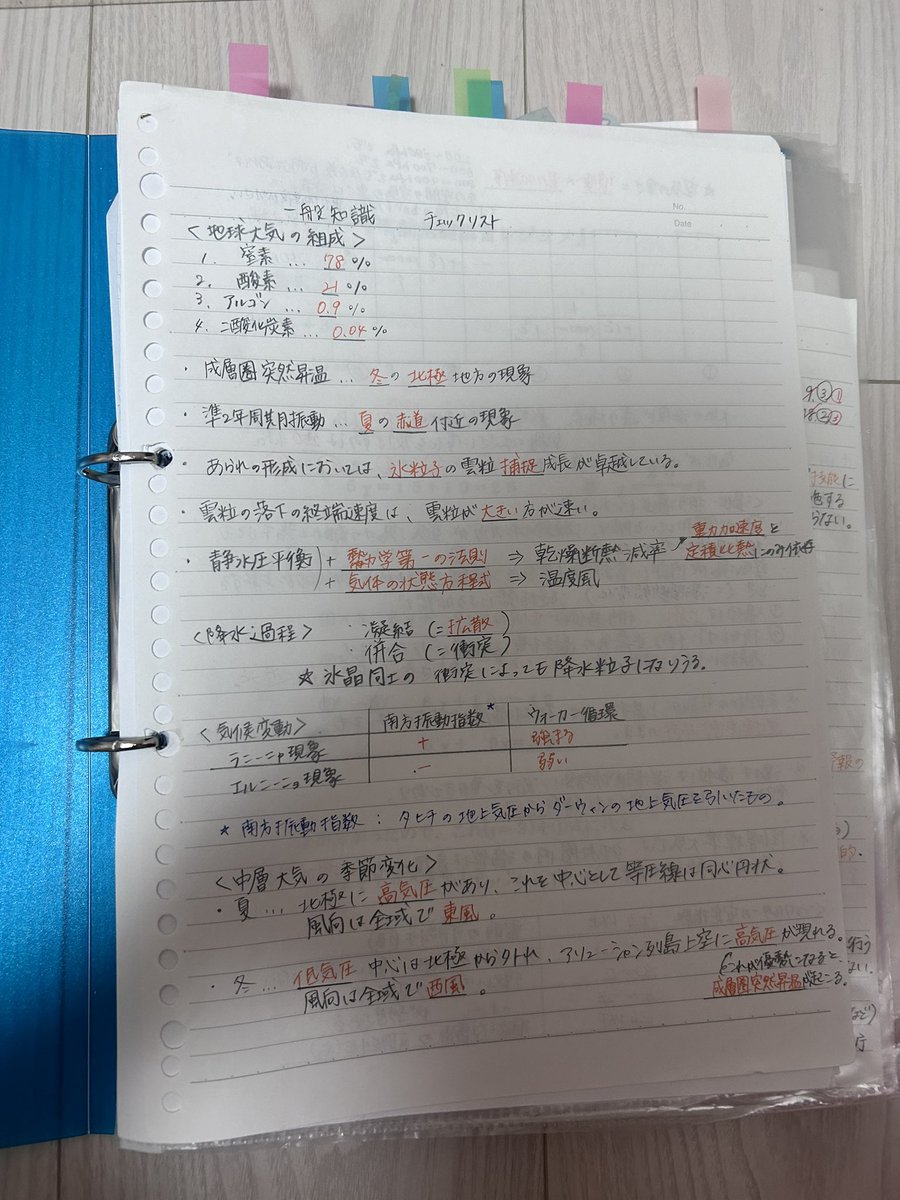 No.
Date
一般知識 チェックリスト
<地球大気の組成>
1. 窒素 … 78 %
2. 酸素 … 21 %
3. アルゴン … 0.9 %
4. 二酸化炭素 … 0.04 %
・成層圏突然昇温 … 冬の北極地方の現象
・準2年周期振動 … 夏の赤道付近の現象
・あられの形成においては、氷粒子の雲粒捕捉成長が卓越している。
・雲粒の落下の終端速度は、雲粒が大きい方が速い。
・静水圧平衡 + 熱力学第一の法則 ⇒ 乾燥断熱減率 重力加速度と
定積比熱にのみ依存
+ 気体の状態方程式 ⇒ 温度風
<降水過程> ・凝結 (=拡散)
・併合 (=衝突)
☆ 氷晶同士の衝突によっても降水粒子になりうる。
<気候変動> 南方振動指数* ウォーカー循環
ラニーニャ現象 + 強まる
エルニーニョ現象 - 弱い
* 南方振動指数 : タヒチの地上気圧からダーウィンの地上気圧を引いたもの。
<中層大気の季節変化>
・夏 … 北極に高気圧があり、これを中心として等圧線は同心円状。
風向は全域で東風。
・冬 … 低気圧中心は北極から外れ、アリューシャン列島上空に高気圧が現れる。
これが優勢になると、
風向は全域で西風。
成層圏突然昇温が起こる。